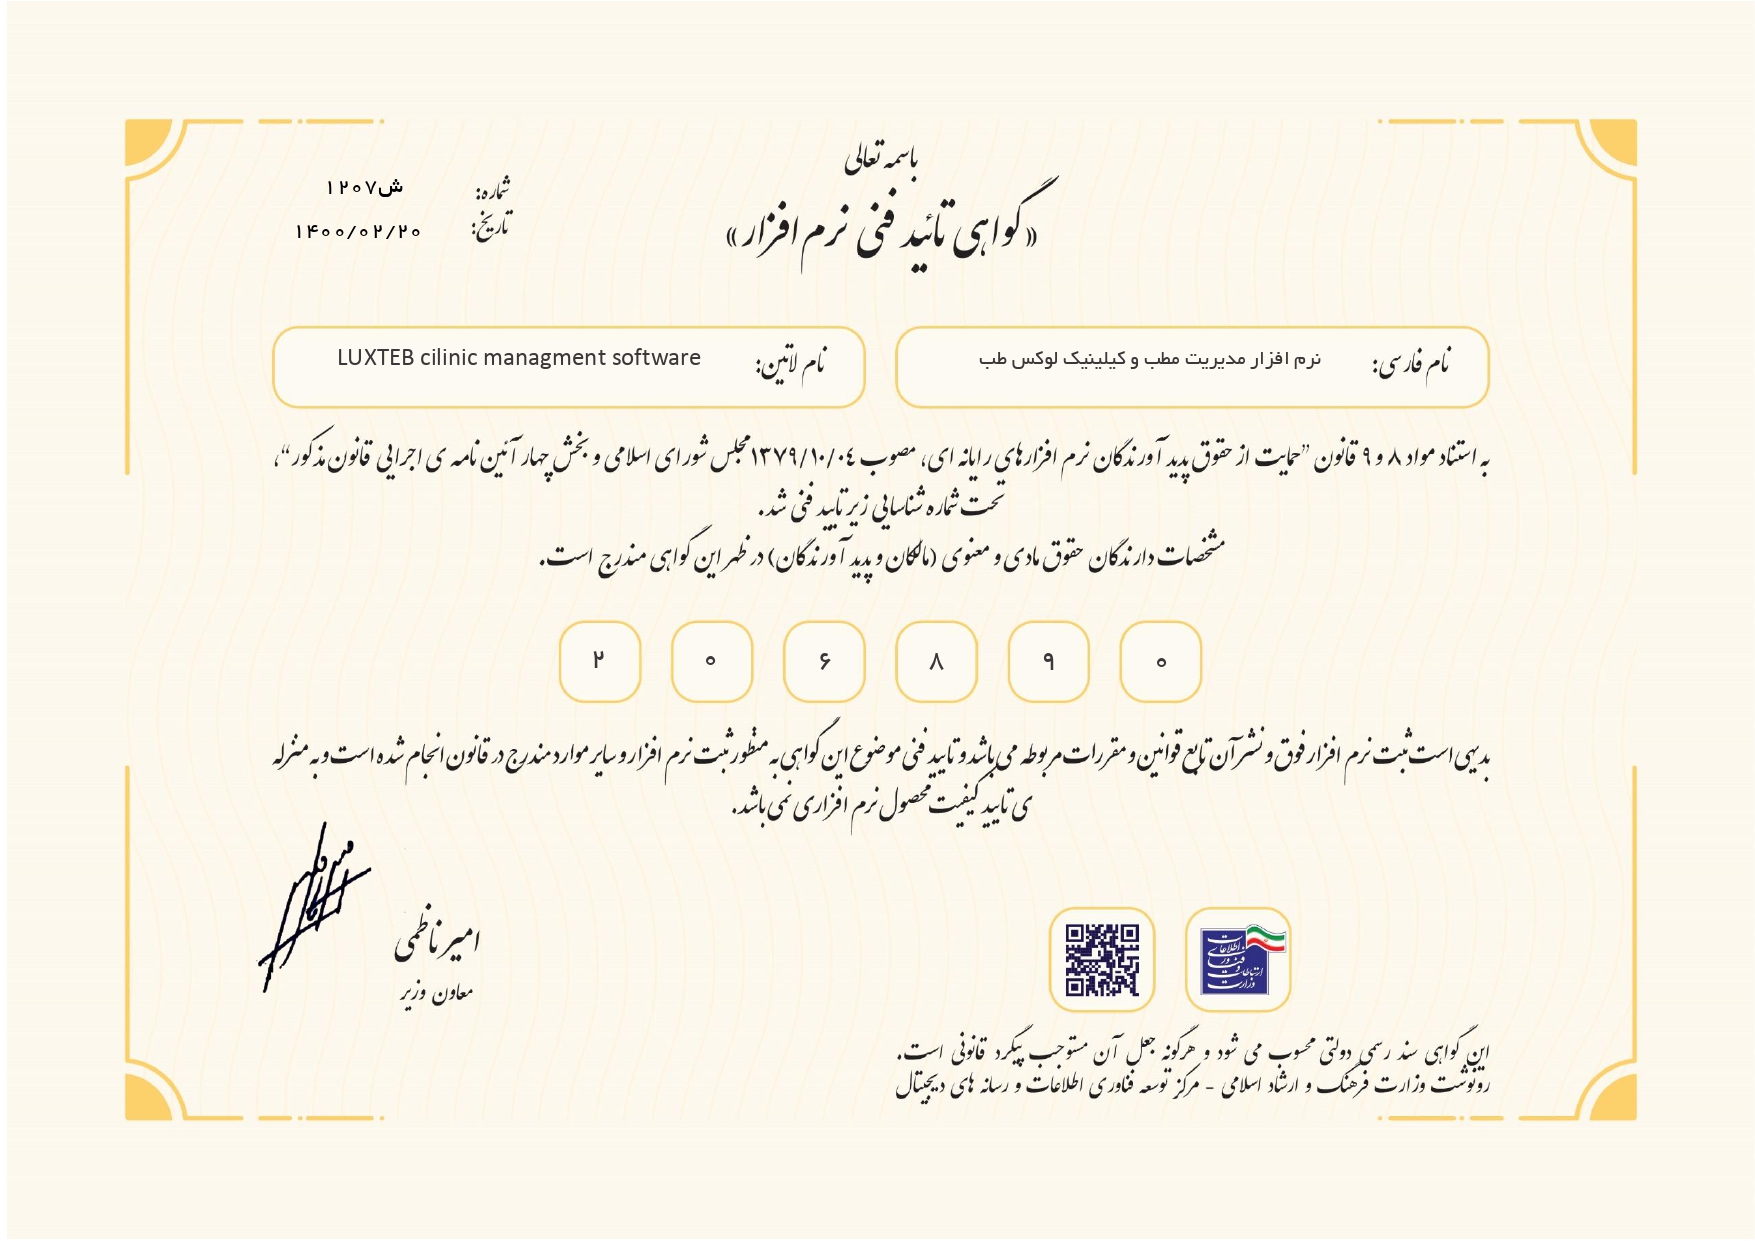 باسمه تعالی
«گواهی تائید فنی نرم افزار»
شماره: ش۱۲۰۷
تاریخ: ۱۴۰۰/۰۲/۲۰
نام فارسی: نرم افزار مدیریت مطب و کیلینیک لوکس طب
نام لاتین: LUXTEB cilinic managment software
به استناد مواد ۸ و ۹ قانون ”حمایت از حقوق پدید آورندگان نرم افزارهای رایانه ای، مصوب ۱۳۷۹/۱۰/۰٤ مجلس شورای اسلامی و بخش چهار آئین نامه ی اجرایی قانون مذکور“،
تحت شماره شناسایی زیر تایید فنی شد.
مشخصات دارندگان حقوق مادی و معنوی (مالکان و پدید آورندگان) در ظهر این گواهی مندرج است.
۲ ۰ ۶ ۸ ۹ ۰
بدیهی است ثبت نرم افزار فوق و نشر آن تابع قوانین و مقررات مربوطه می باشد و تایید فنی موضوع این گواهی به منظور ثبت نرم افزار و سایر موارد مندرج در قانون انجام شده است و به منزله
ی تایید کیفیت محصول نرم افزاری نمی باشد.
امیر ناظمی
معاون وزیر
وزارت ارتباطات و فناوری اطلاعات
این گواهی سند رسمی دولتی محسوب می شود و هرگونه جعل آن مستوجب پیگرد قانونی است.
رونوشت وزارت فرهنگ و ارشاد اسلامی - مرکز توسعه فناوری اطلاعات و رسانه های دیجیتال